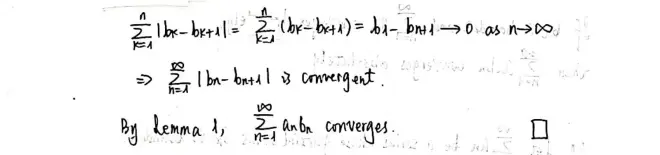 \sum_{k=1}^{n} |b_k - b_{k+1}| = \sum_{k=1}^{n} (b_k - b_{k+1}) = b_1 - b_{n+1} → 0 as n→∞
⇒ \sum_{n=1}^{∞} |b_n - b_{n+1}| is convergent.
By Lemma 1, \sum_{n=1}^{∞} a_n b_n converges. □